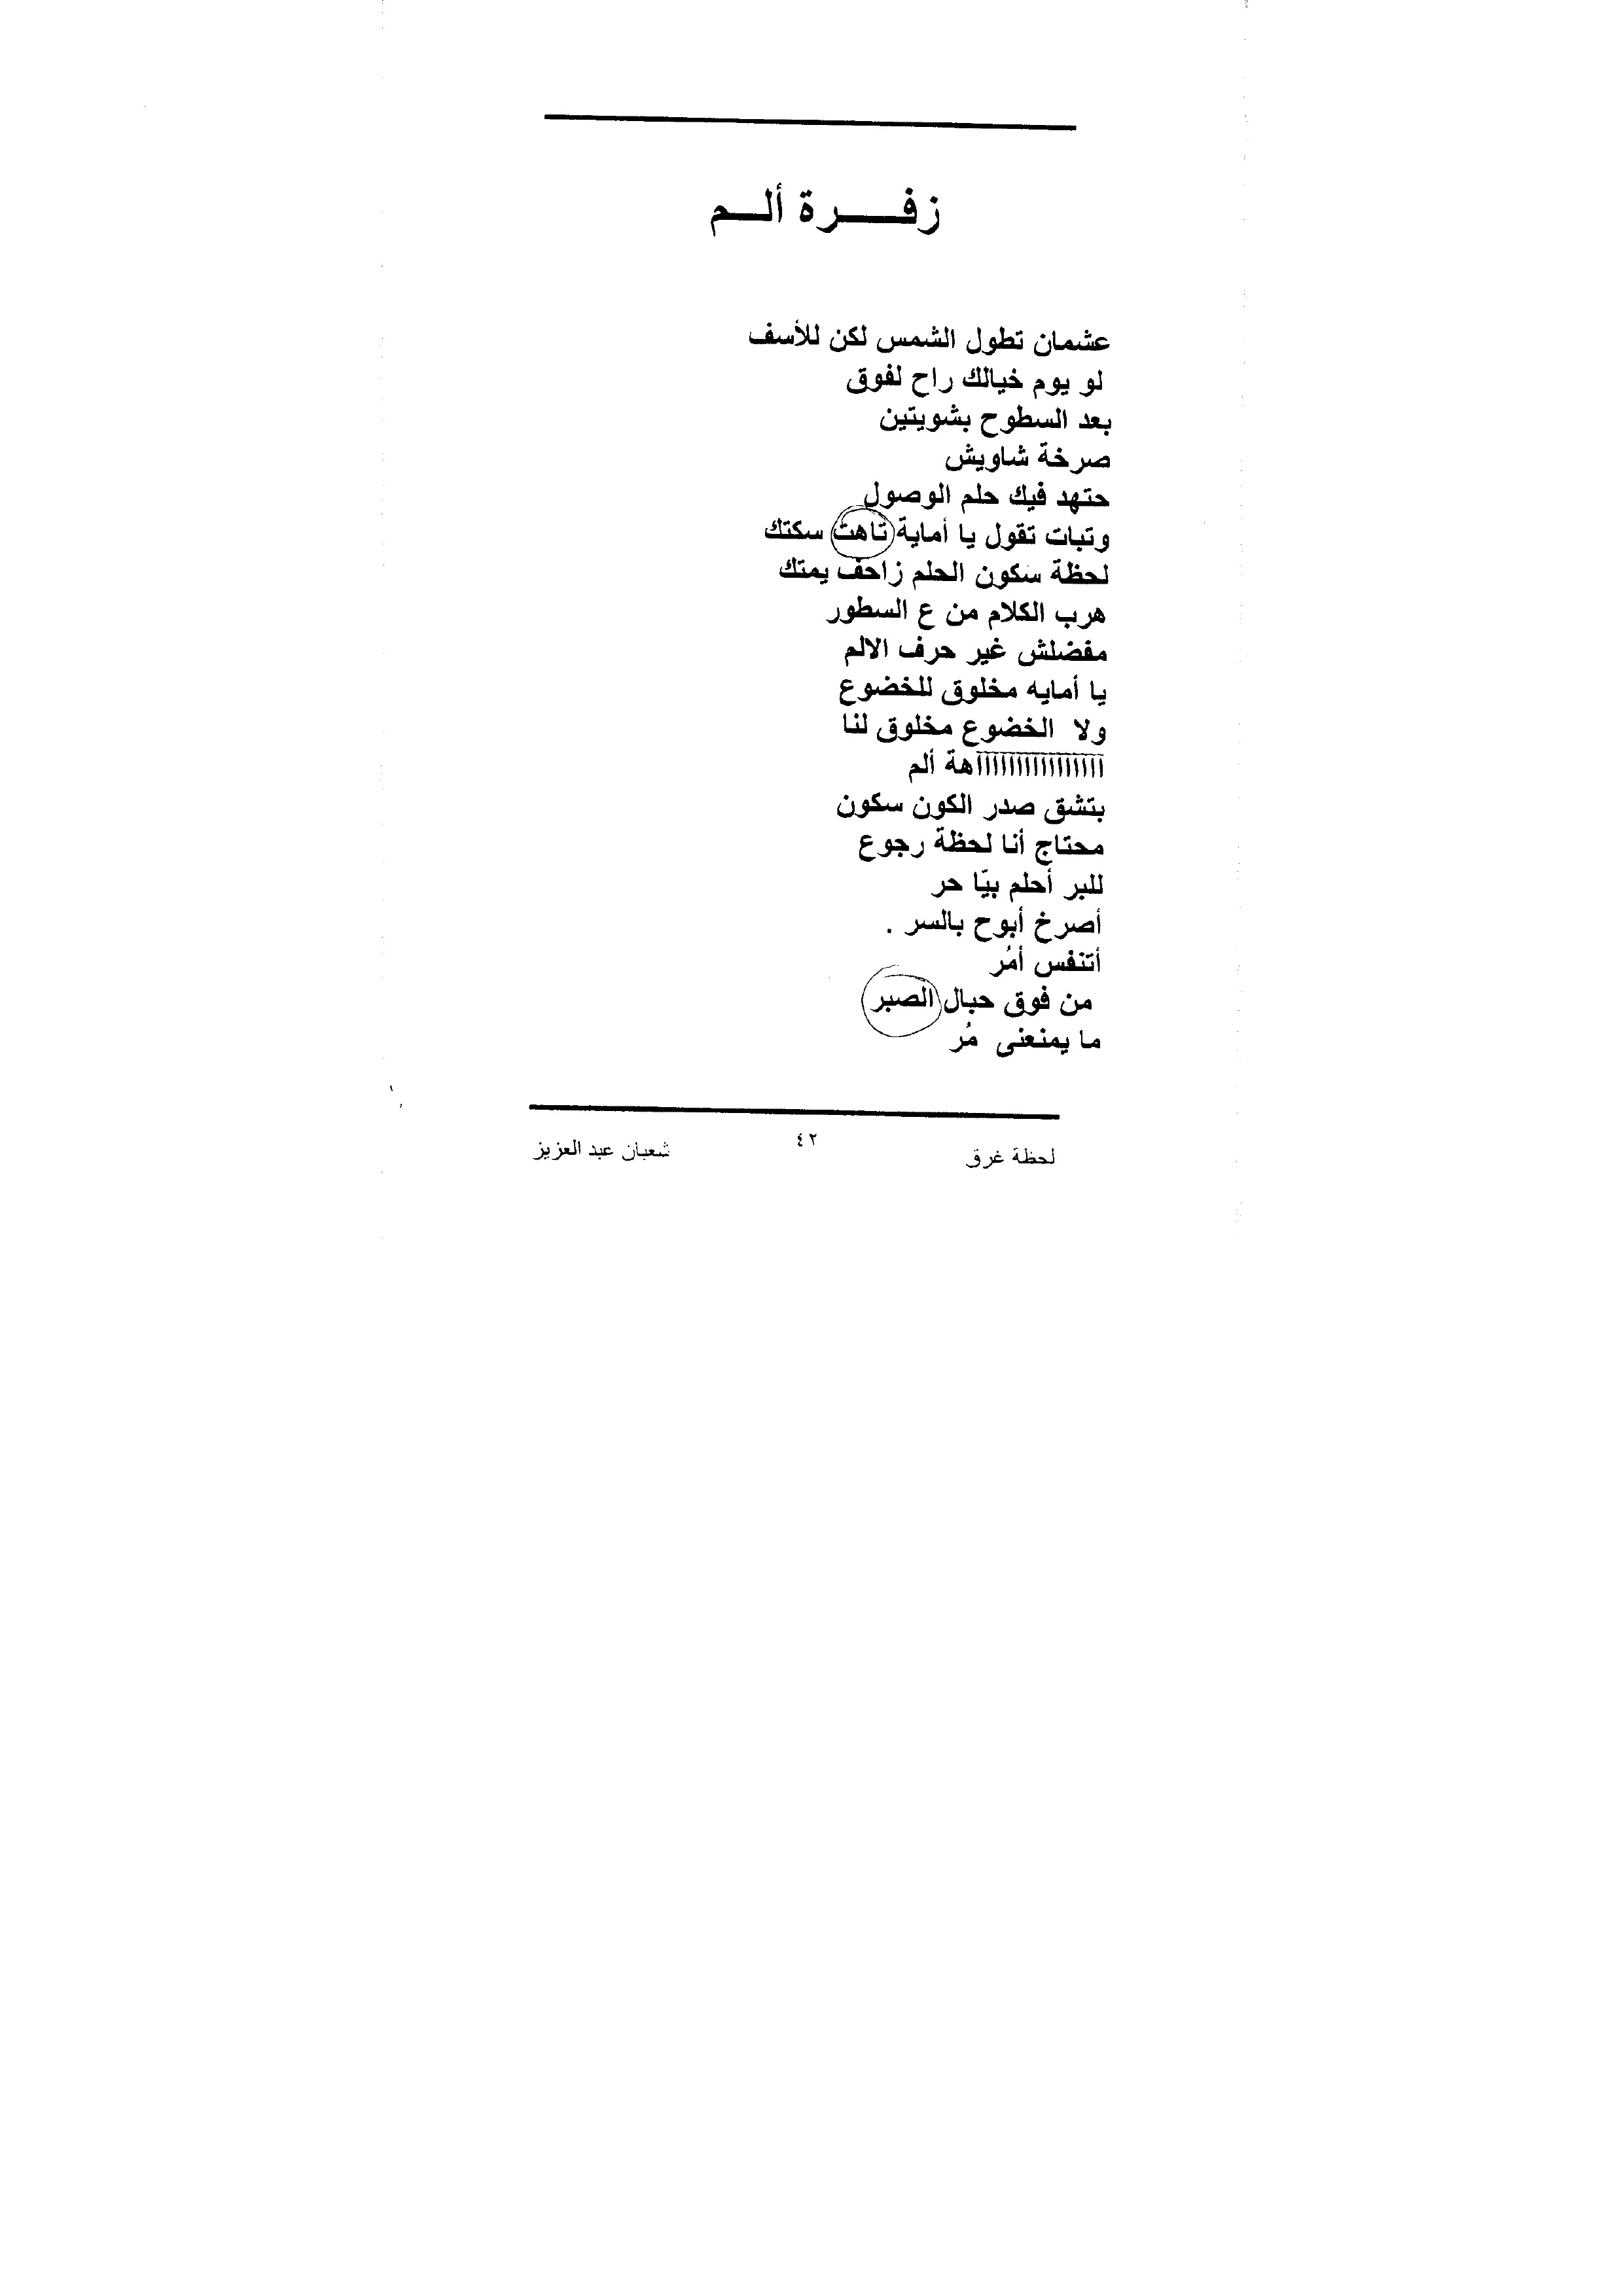 زفـــرة ألـــم
عشمان تطول الشمس لكن للأسف
لو يوم خيالك راح لفوق
بعد السطوح بشويتين
صرخة شاويش
حتهد فيك حلم الوصول
وتبات تقول يا أماية تاهت سكتك
لحظة سكون الحلم زاحف يمتك
هرب الكلام من ع السطور
مفضلش غير حرف الالم
يا أمايه مخلوق للخضوع
ولا الخضوع مخلوق لنا
آآآآآآآآآآآآآآآآهة ألم
بتشق صدر الكون سكون
محتاج أنا لحظة رجوع
للبر أحلم بيّا حر
أصرخ أبوح بالسر .
أتنفس أمُر
من فوق حبال الصبر
ما يمنعنى مُر
لحظة غرق ٤٢ شعبان عبد العزيز